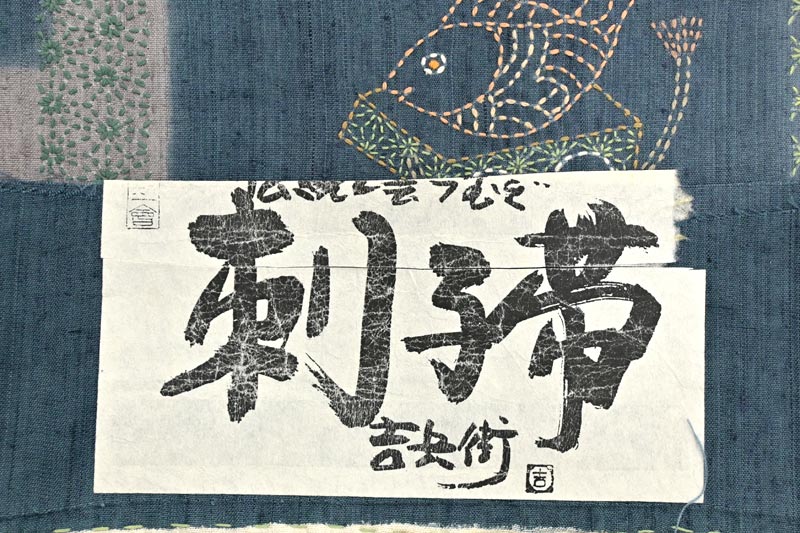 伝統工芸つむぎ
刺子帯
吉兵衛
吉